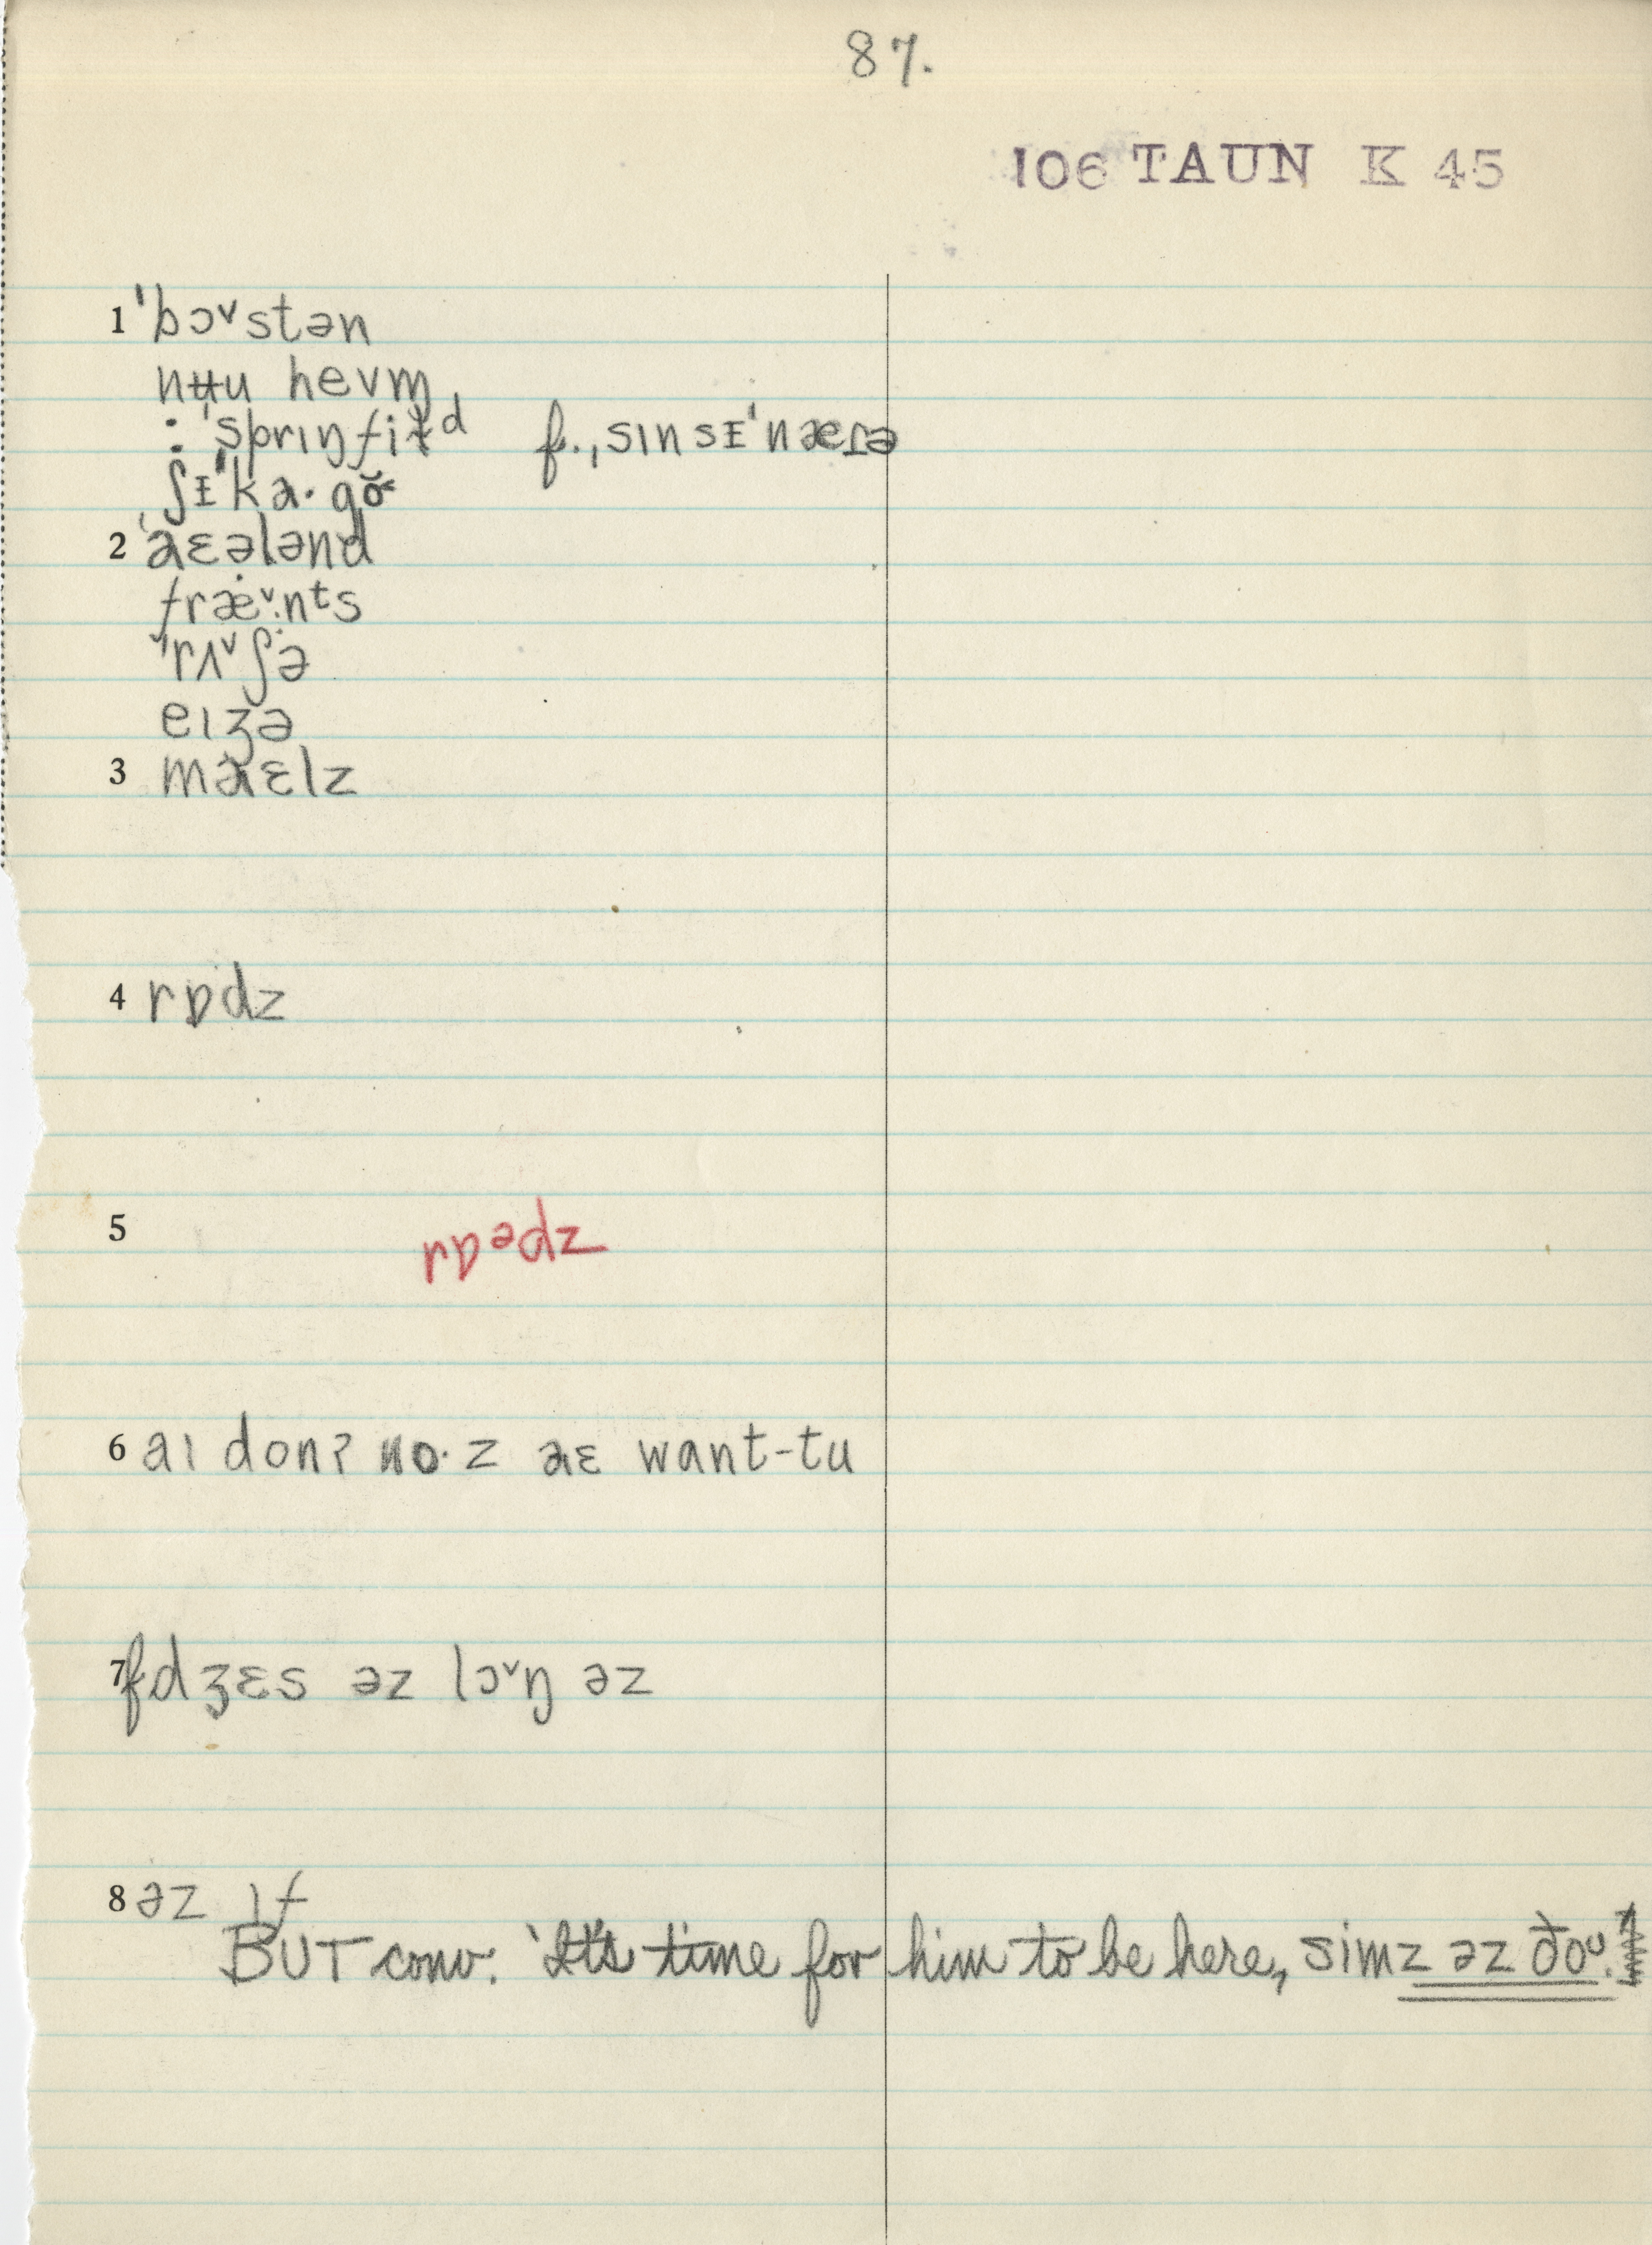 87.
106 TAUN K 45
1 ˈbɔ˅stən
nʉu hevm̩
: ˈsprɪŋfiɫᵈ f. ˌsɪnsᵻˈnæɾə
ʃᵻˈka·gŏ˂
2 ˈaɛələnd
fræ˅·nᵗs
ˈrʌ˅ʃə
eɪʒə
3 maɛlz
4 rɒdz
5 rɒᵊdz
6 aɪ donʔ no·z aɛ want-tu
7 f dʒɛs əz lɔ˅ŋ əz
8 əz ɪf
BUT conv. 'It's time for him to be here, simz əz ðoᶷ.'